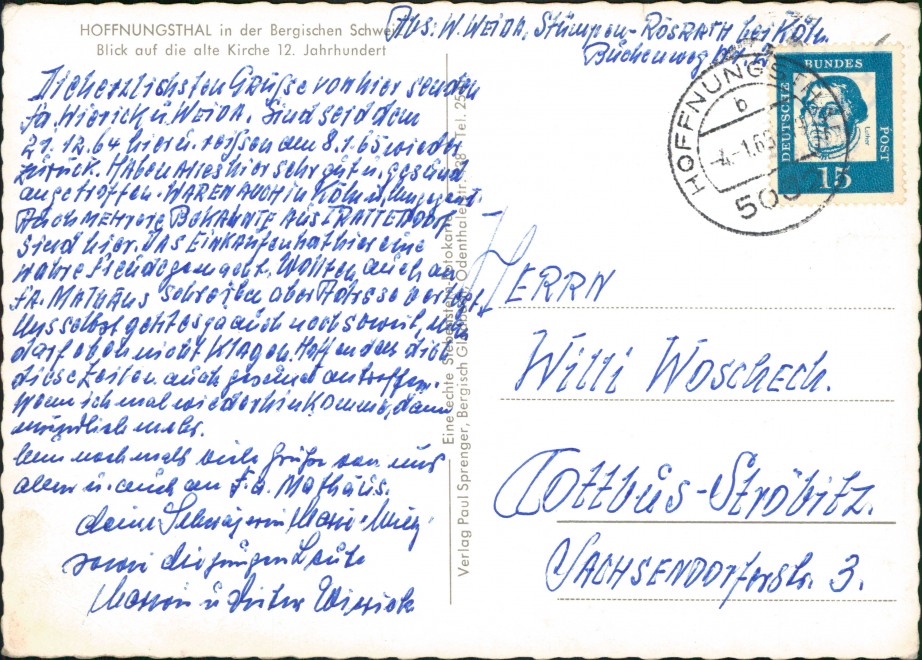 HOFFNUNGSTHAL in der Bergischen Schweiz
Blick auf die alte Kirche 12. Jahrhundert
Abs: W. WEIDA, Stümpen-RÖSRATH bei Köln
Buchenweg
DEUTSCHE BUNDES POST
Luther
15
HOFFNUNGSTHAL
b
-4.-1.65
Die herzlichsten Grüße von hier senden
Fa. Wierick u. WEIDA. Sind seid dem
21.12.64 hier u. reisen am 8.1.65 wieder
zurück. HABEN Alles hier sehr gut u. gesund
angetroffen. WAREN AUCH IN Köln u. Umgegent.
Auch MEHRere BEKANNTE AUS TRATTENDORF
sind hier. DAS EINKAufen hat hier eine
wahre Freude gemacht. Wollten auch an
FA. MATHÄUS schreiben aber Adresse vergeß.
Uns selbst geht es ja auch noch soweit, man
darf eben nicht Klagen. Hoffen das dich
diese Zeilen auch gesund antreffen.
Wenn ich mal wieder hin Komme, dann
mündlich mehr.
nochmals viele Grüße von uns
allen u. auch an F.a. Mathäus.
deine Schwägerin
sowie die jungen Leute
u Dieter Wierick
Eine echte Siebenstern-Fotokarte
Verlag Paul Sprenger, Bergisch Gladbach, Odenthaler Str.
HERRN
Willi Woscheck.
Cottbus-Ströbitz.
SACHSENDORferstr. 3.